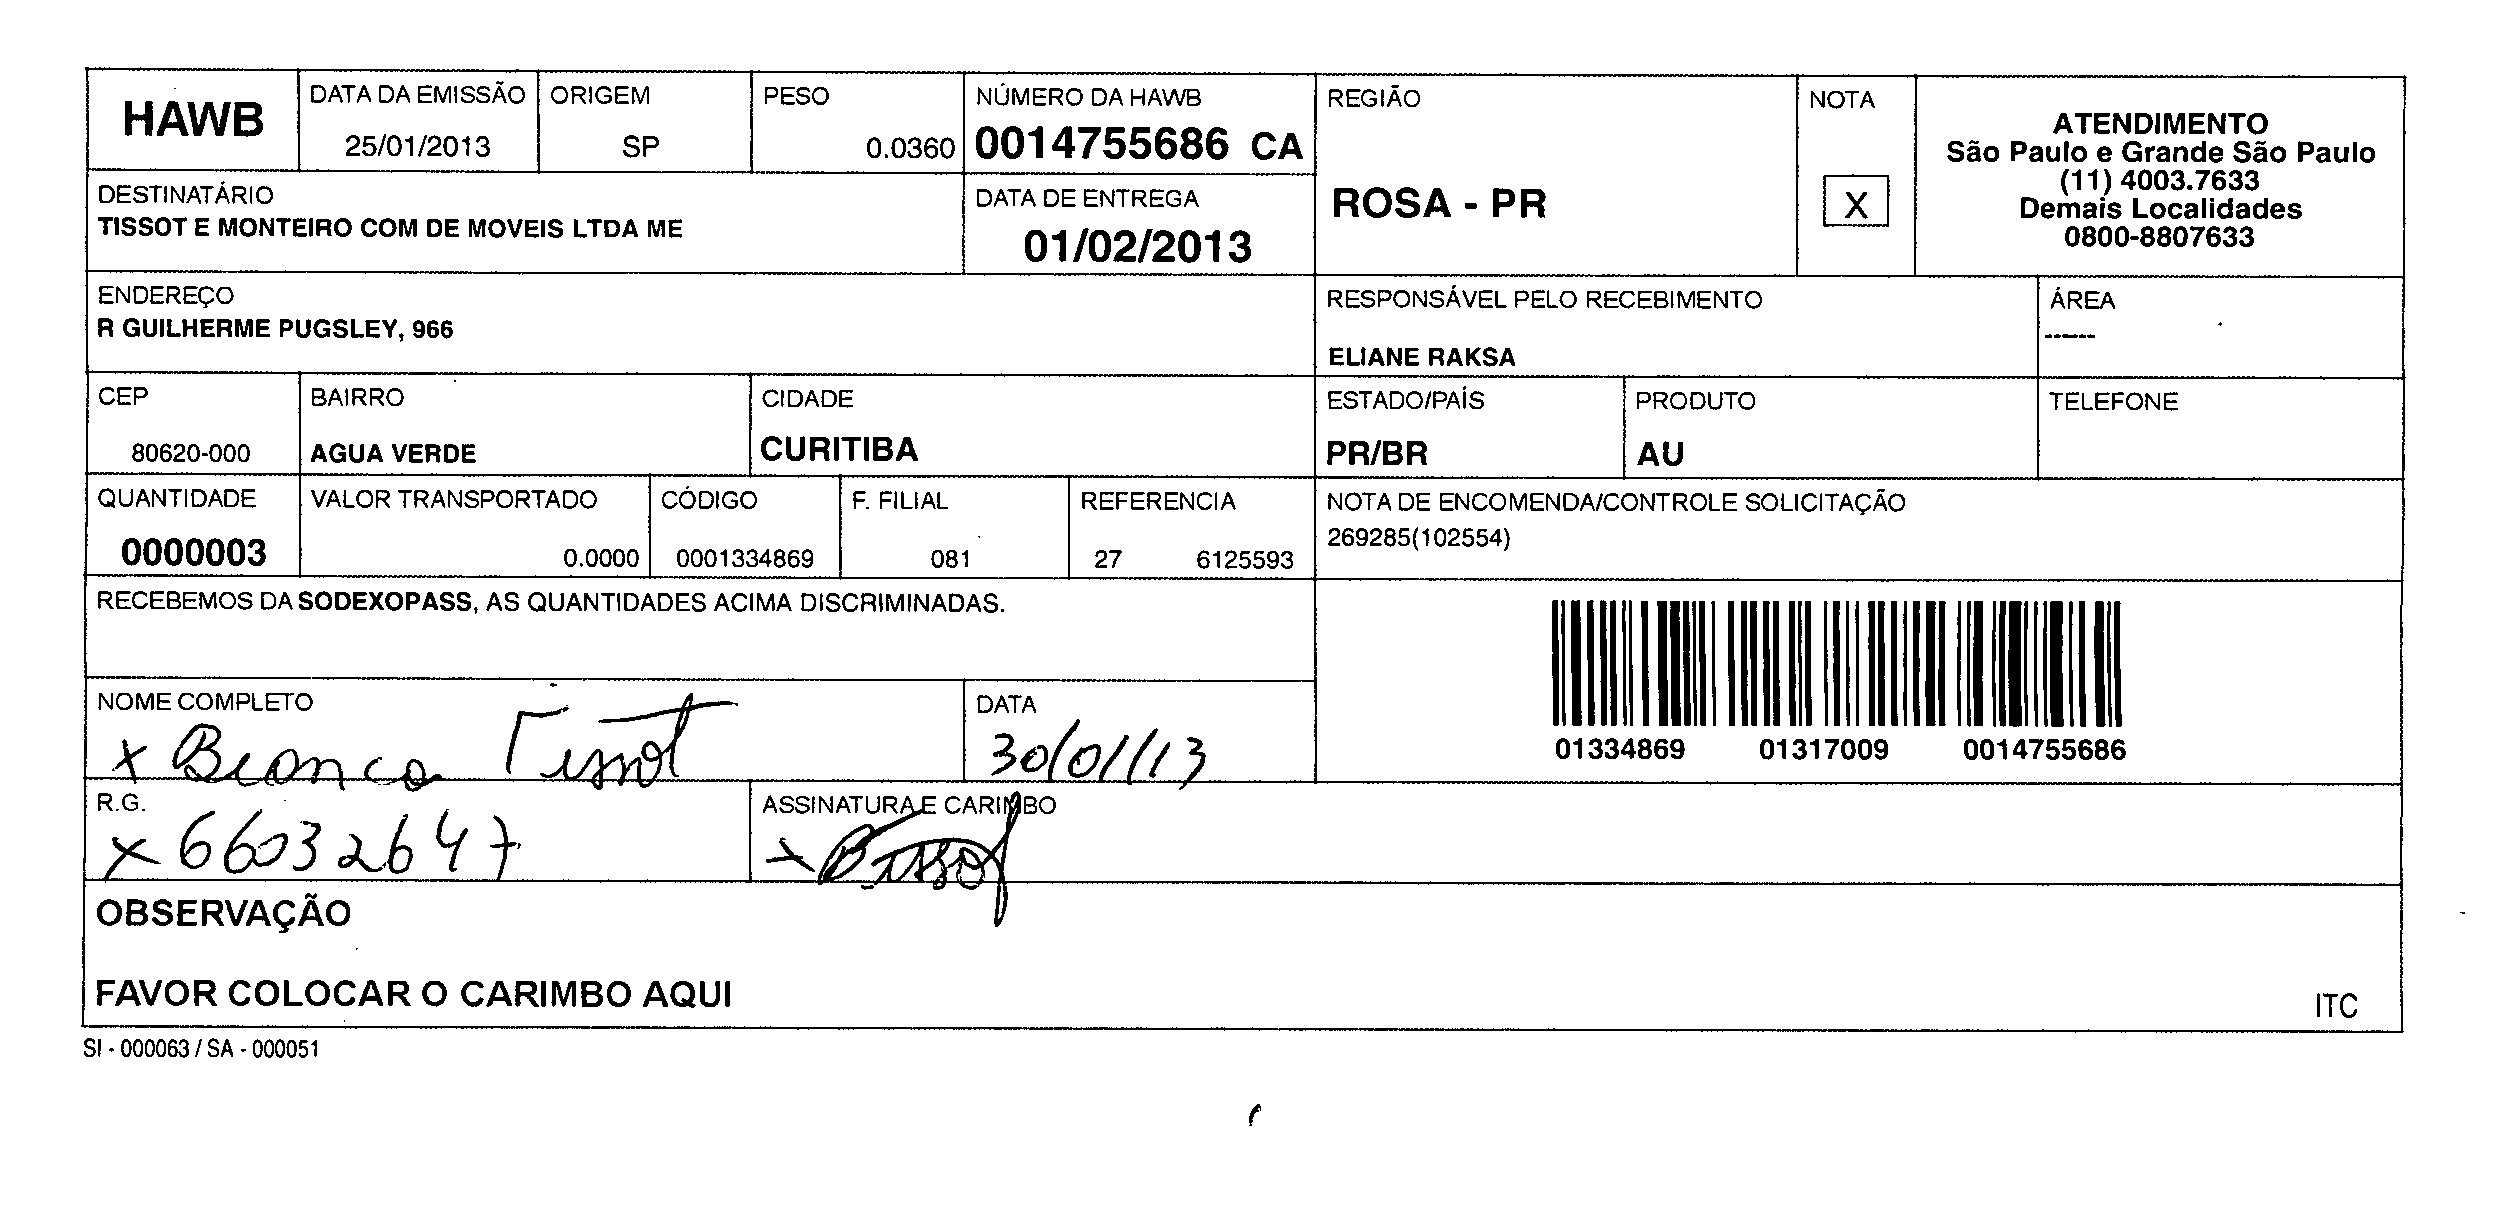 HAWB
DATA DA EMISSÃO
25/01/2013
ORIGEM
SP
PESO
0.0360
NÚMERO DA HAWB
0014755686 CA
REGIÃO
ROSA - PR
NOTA
X
ATENDIMENTO
São Paulo e Grande São Paulo
(11) 4003.7633
Demais Localidades
0800-8807633
DESTINATÁRIO
TISSOT E MONTEIRO COM DE MOVEIS LTDA ME
DATA DE ENTREGA
01/02/2013
ENDEREÇO
R GUILHERME PUGSLEY, 966
RESPONSÁVEL PELO RECEBIMENTO
ELIANE RAKSA
ÁREA
------
CEP
80620-000
BAIRRO
AGUA VERDE
CIDADE
CURITIBA
ESTADO/PAÍS
PR/BR
PRODUTO
AU
TELEFONE
QUANTIDADE
0000003
VALOR TRANSPORTADO
0.0000
CÓDIGO
0001334869
F. FILIAL
081
REFERENCIA
27 6125593
NOTA DE ENCOMENDA/CONTROLE SOLICITAÇÃO
269285(102554)
RECEBEMOS DA SODEXOPASS, AS QUANTIDADES ACIMA DISCRIMINADAS.
01334869 01317009 0014755686
NOME COMPLETO
x Bianca Tissot
DATA
30/01/13
R.G.
x 66032647
ASSINATURA E CARIMBO
x BTissot
OBSERVAÇÃO
FAVOR COLOCAR O CARIMBO AQUI
ITC
SI - 000063 / SA - 000051